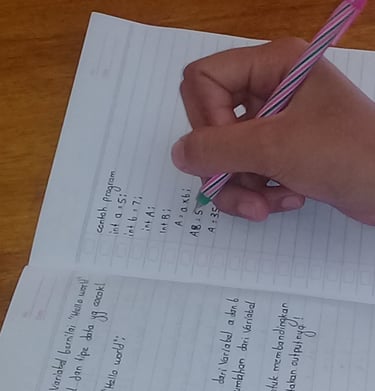 contoh program
int a = 5;
int b = 7;
int A;
int B;
A = a x b;
AB = 5
A = 35
Variabel bernilai "Hello world"
dan tipe data yg cocok!
Hello world";
dari Variabel a dan b
dari Variabel
tuk membandingkan
outputnya!